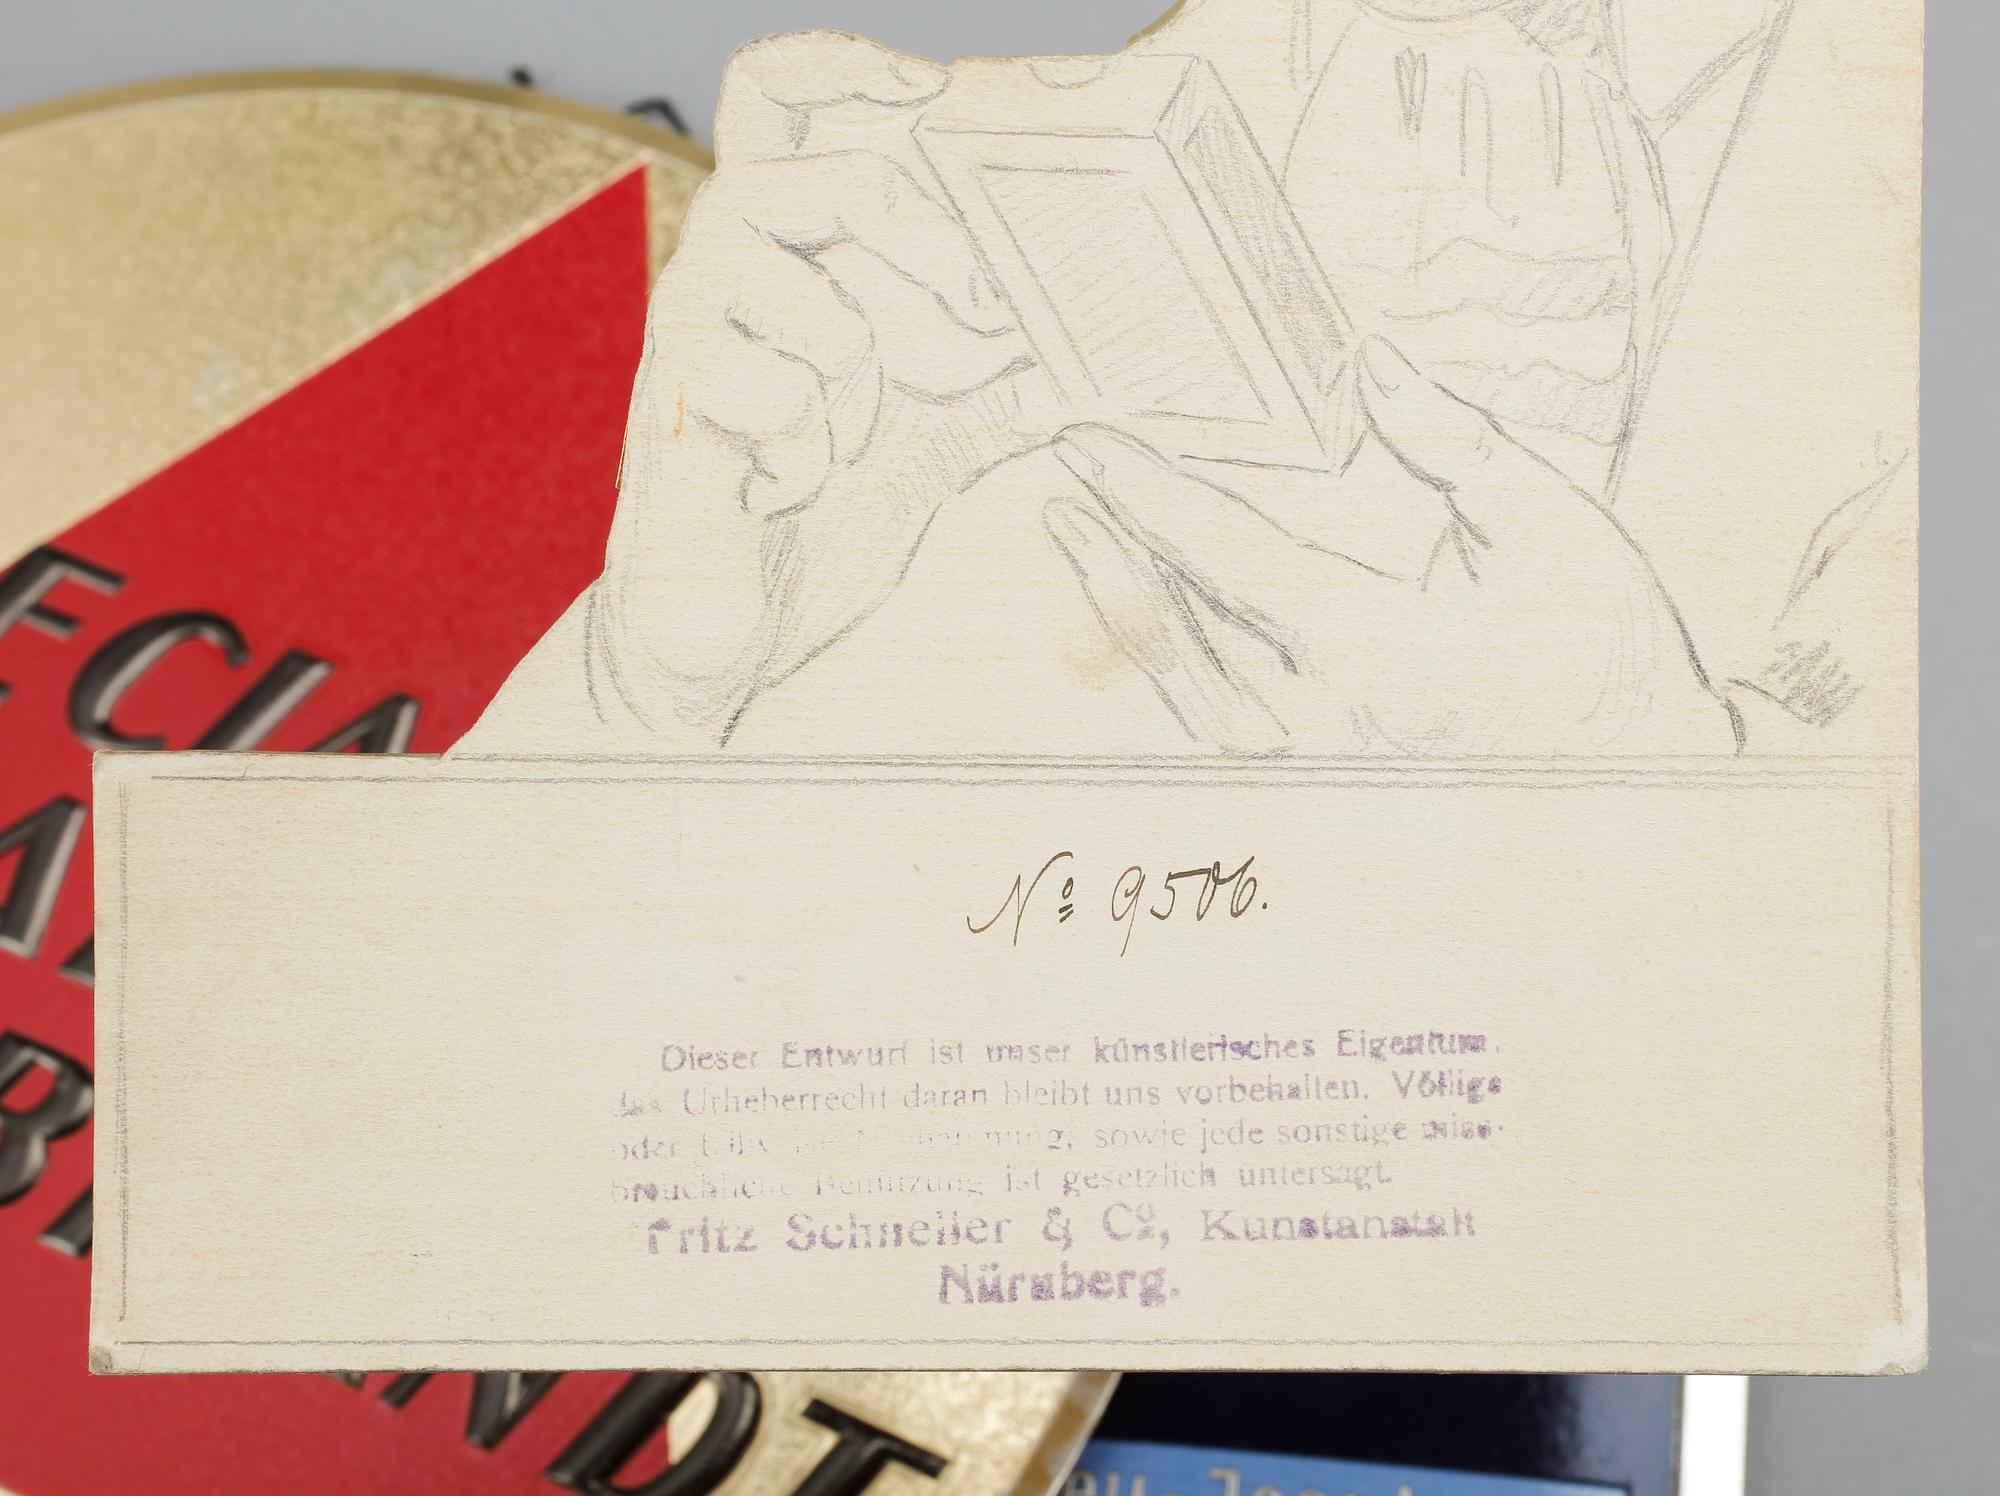 № 9506.
Dieser Entwurf ist unser künstlerisches Eigentum,
das Urheberrecht daran bleibt uns vorbehalten. Völlige
oder sowie jede sonstige miss-
bräuchliche Benützung ist gesetzlich untersagt.
Fritz Schneller & Cº, Kunstanstalt
Nürnberg.
ECIA